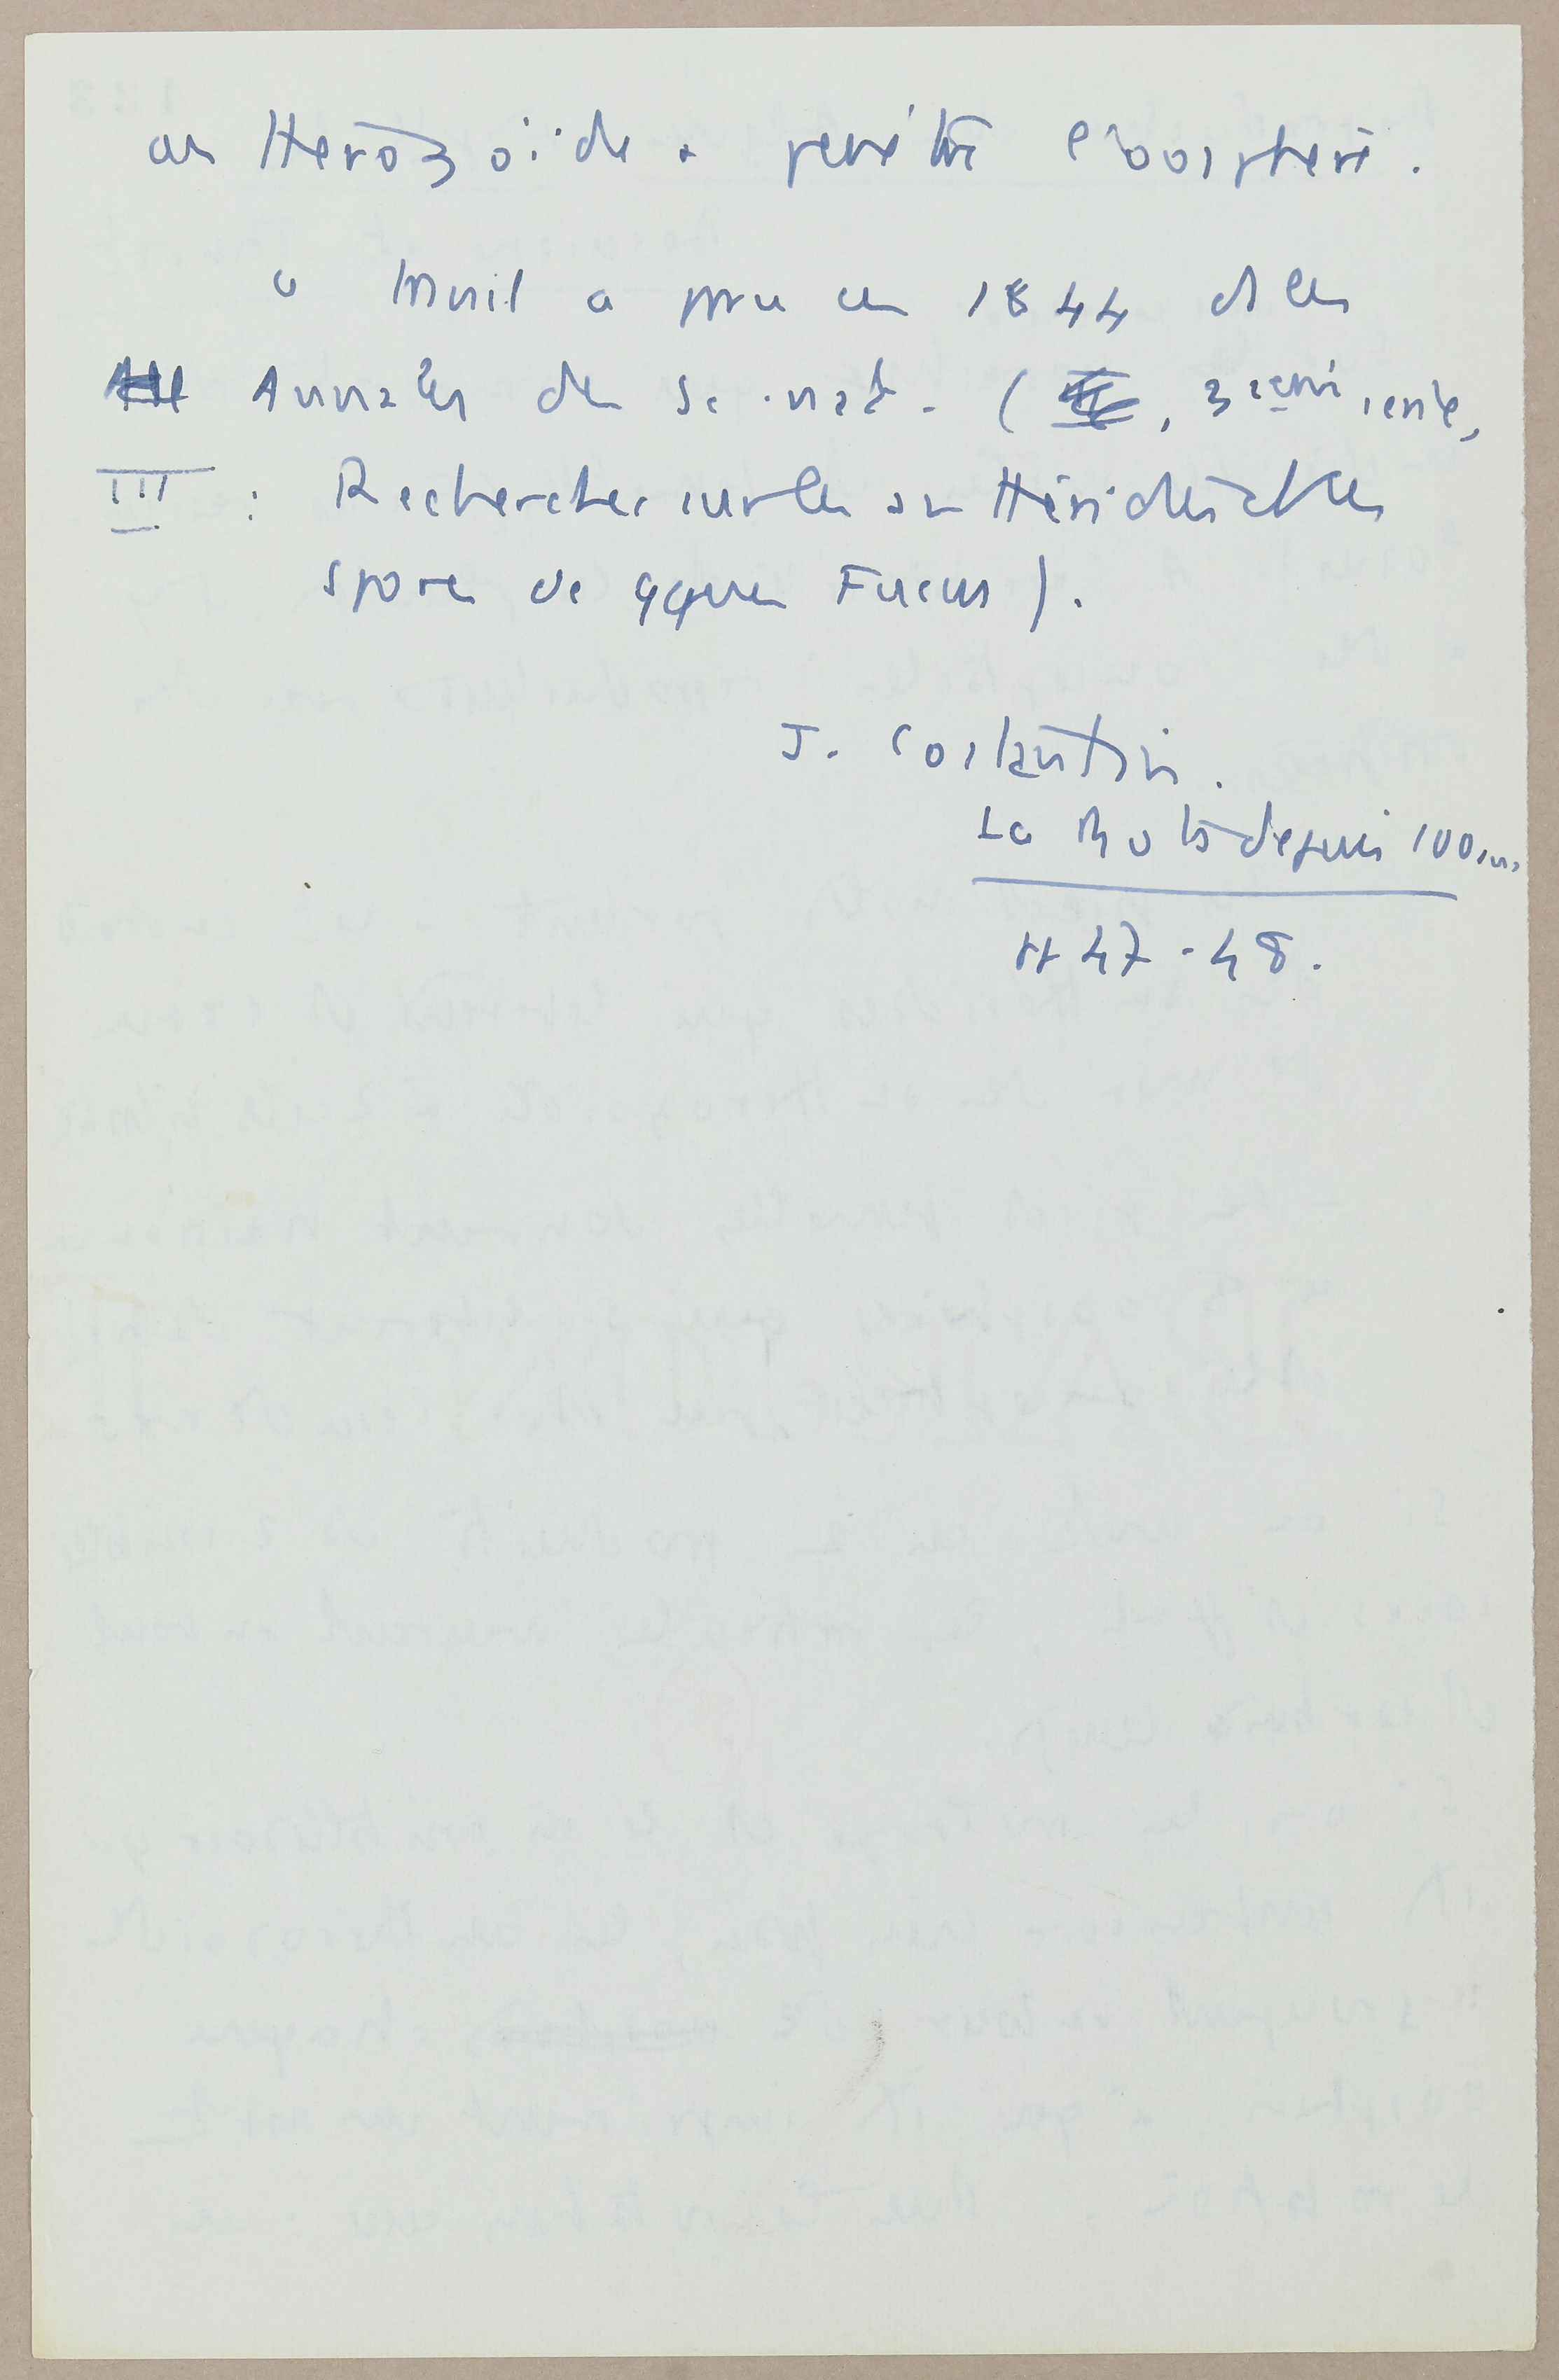 anthérozoïde a pénétré l'oosphère.
Mémoire a paru en 1844 ds les
Annales des Sc. nat. ( , 3ième série,
III : Recherches sur les anthéridies et les
spores de qques Fucus).
J. Costantin.
La Bot depuis 100 ans
pp 47-48.